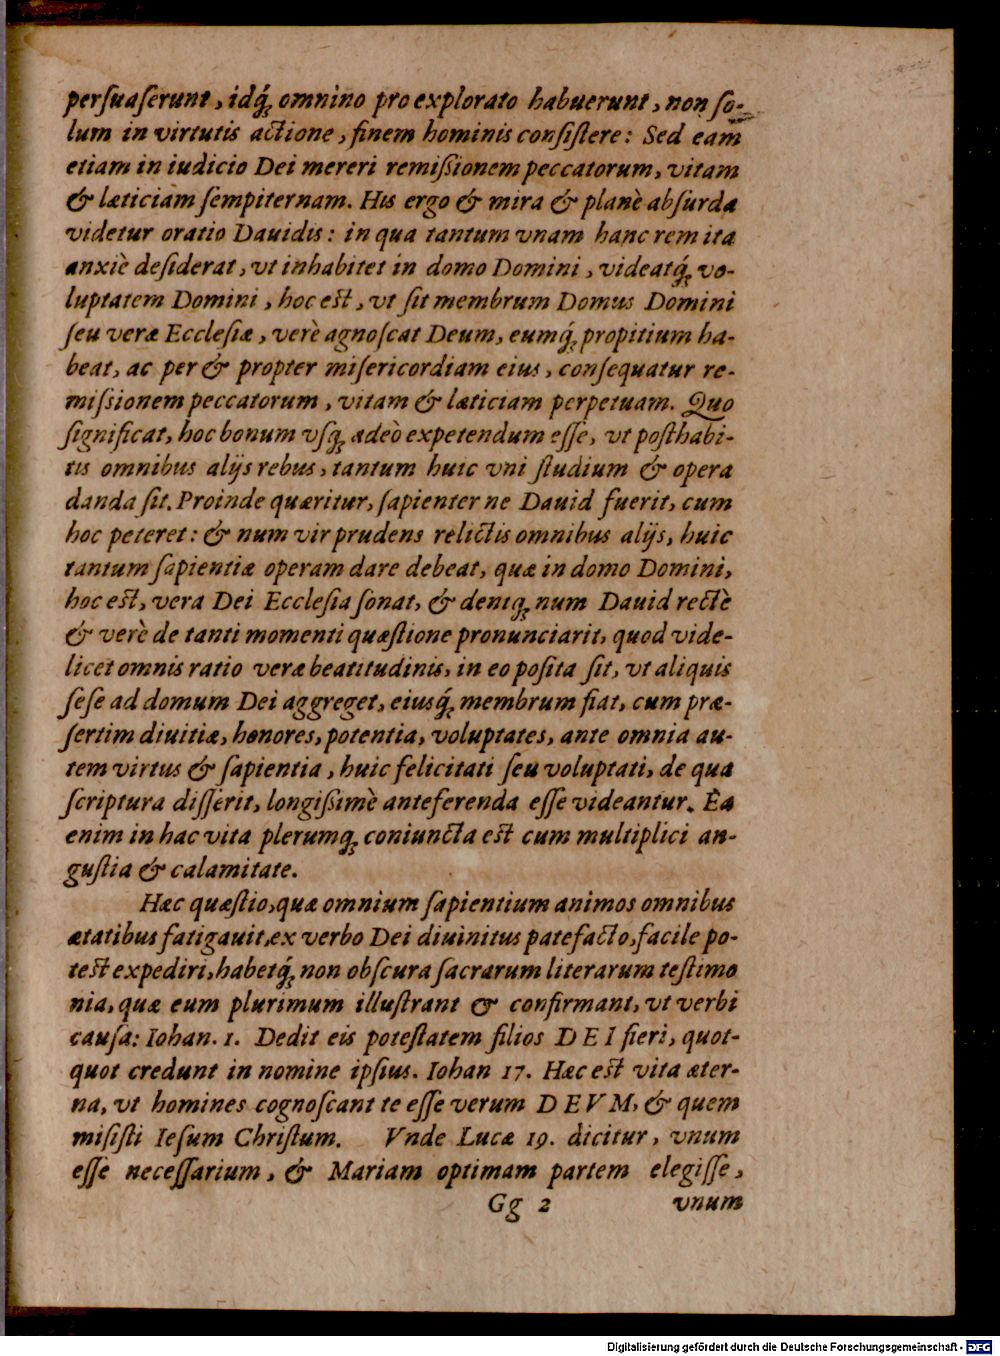 perſuaſerunt, idq́ꝫ omnino pro explorato habuerunt, non ſo-
lum in virtutis actione, finem hominis conſiſtere: Sed eam
etiam in iudicio Dei mereri remißionem peccatorum, vitam
& læticiam ſempiternam. His ergo & mira & planè abſurda
videtur oratio Dauidis: in qua tantum vnam hanc rem ita
anxiè deſiderat, vt inhabitet in domo Domini, videatq́ꝫ vo-
luptatem Domini, hoc est, vt ſit membrum Domus Domini
ſeu veræ Eccleſiæ, verè agnoſcat Deum, eumq́ꝫ propitium ha-
beat, ac per & propter miſericordiam eius, conſequatur re-
mißionem peccatorum, vitam & læticiam perpetuam. Quo
ſignificat, hoc bonum vſqꝫ adeò expetendum eſſe, vt poſthabi-
tis omnibus alijs rebus, tantum huic vni ſtudium & opera
danda ſit. Proinde quæritur, ſapienter ne Dauid fuerit, cum
hoc peteret: & num vir prudens relictis omnibus alijs, huic
tantum ſapientiæ operam dare debeat, quæ in domo Domini,
hoc est, vera Dei Eccleſia ſonat, & deniqꝫ num Dauid rectè
& verè de tanti momenti quæſtione pronunciarit, quod vide-
licet omnis ratio veræ beatitudinis, in eo poſita ſit, vt aliquis
ſeſe ad domum Dei aggreget, eiusq́ꝫ membrum fiat, cum præ-
ſertim diuitiæ, honores, potentia, voluptates, ante omnia au-
tem virtus & ſapientia, huic felicitati ſeu voluptati, de qua
ſcriptura diſſerit, longißimè anteferenda eſſe videantur. Ea
enim in hac vita plerumqꝫ coniuncta est cum multiplici an-
guſtia & calamitate.
Hæc quæſtio, quæ omnium ſapientium animos omnibus
ætatibus fatigauit, ex verbo Dei diuinitus patefacto, facile po-
test expediri, habetq́ꝫ non obſcura ſacrarum literarum teſtimo
nia, quæ eum plurimum illuſtrant & confirmant, vt verbi
cauſa: Iohan. 1. Dedit eis poteſtatem filios DEI fieri, quot-
quot credunt in nomine ipſius. Iohan 17. Hæc est vita æter-
na, vt homines cognoſcant te eſſe verum DEVM, & quem
miſiſti Ieſum Chriſtum. Vnde Lucæ 19. dicitur, vnum
eſſe neceſſarium, & Mariam optimam partem elegiſſe,
Gg 2 vnum
Digitalisierung gefördert durch die Deutsche Forschungsgemeinschaft - DFG